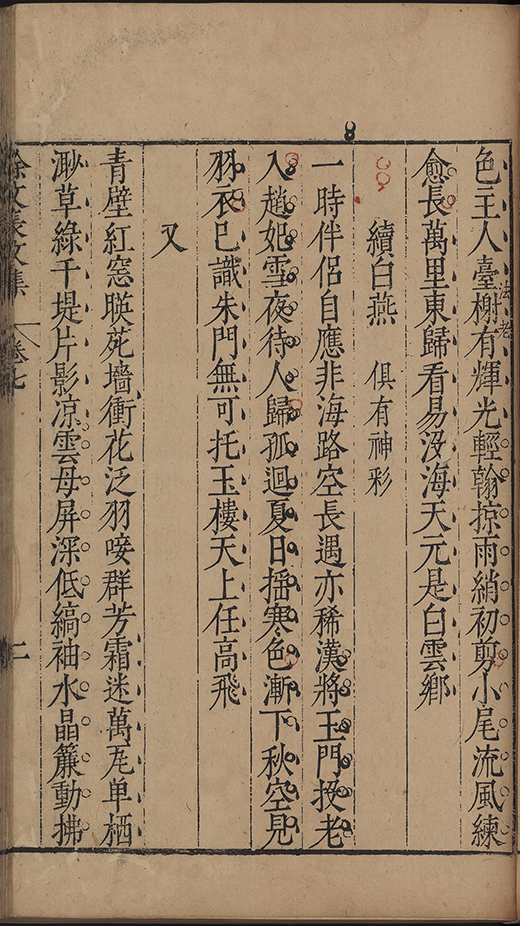 色主人臺榭有輝光輕翰掠雨綃初剪小尾流風練
法老
愈長萬里東歸看易沒海天元是白雲鄉
續白燕 俱有神彩
一時伴侶自應非海路空長遇亦稀漢將玉門投老
入趙妃雪夜待人歸孤迴夏日揺寒色漸下秋空見
羽衣已識朱門無可托玉樓天上任高飛
又
青壁紅窓暎苑墻衝花泛羽唼群芳霜迷萬瓦单栖
渺草綠千堤片影凉雲母屏深低縞袖水晶簾動拂
徐文長文集 卷七